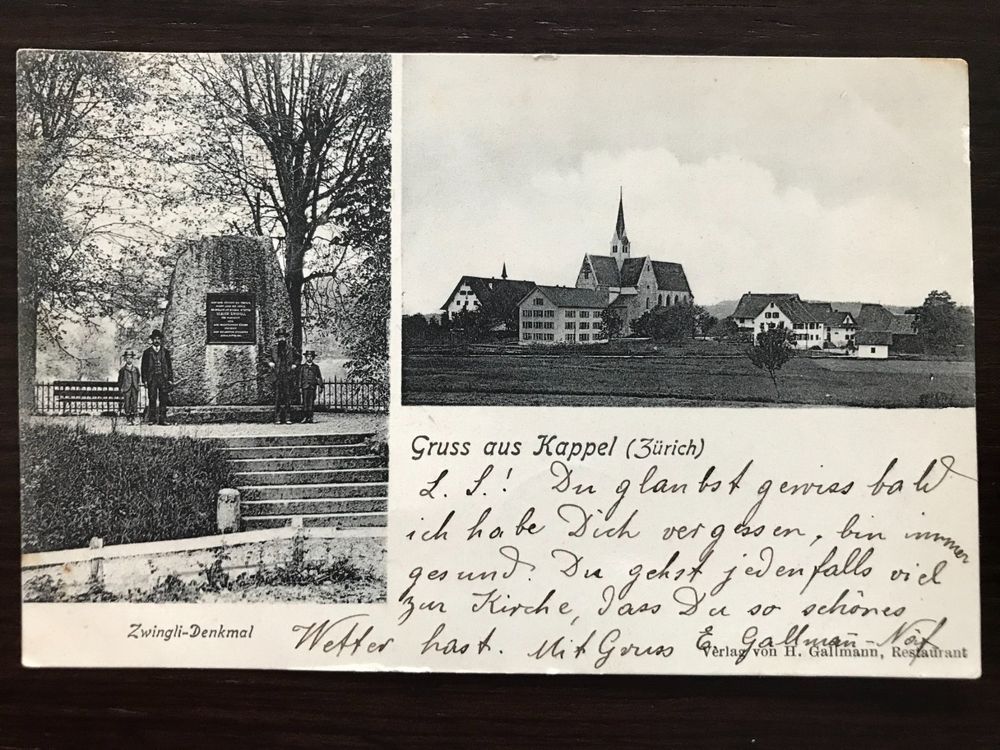 Gruss aus Kappel (Zürich)
L. S.! Du glaubst gewiss bald
ich habe Dich vergessen, bin immer
gesund. Du gehst jedenfalls viel
zur Kirche, dass Du so schönes
Wetter hast. Mit Gruss E. Gallmann-Näf
Zwingli-Denkmal
Verlag von H. Gallmann, Restaurant